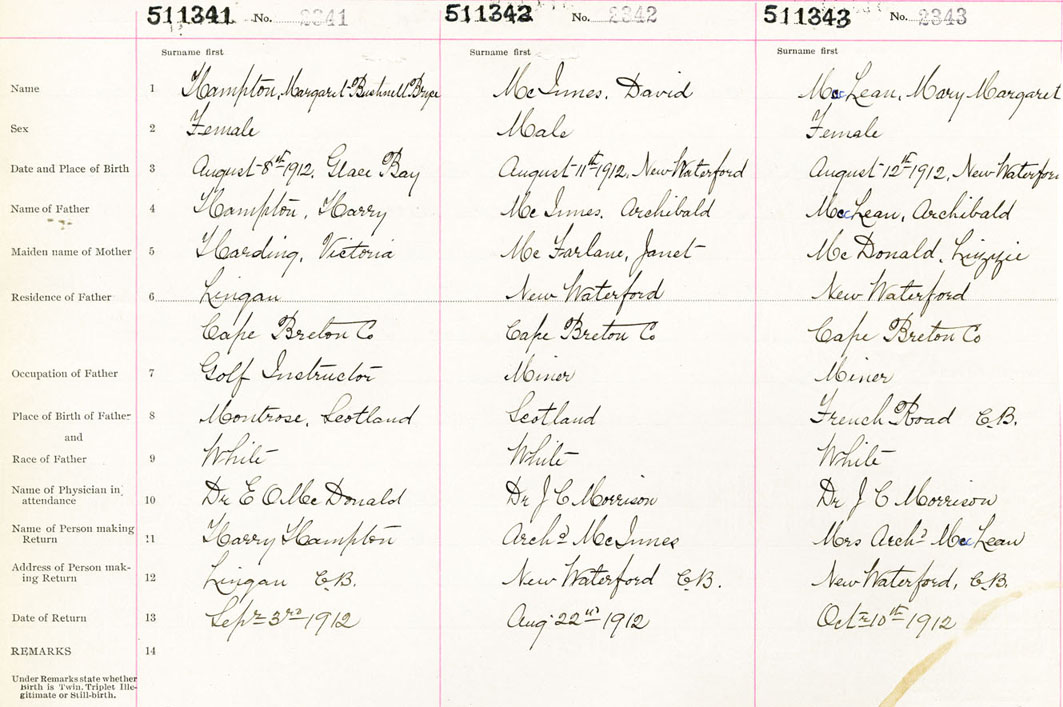 511341 No. 2341 511342 No. 2342 511343 No. 2343
Surname first Surname first Surname first
Name 1 Hampton, Margaret Bushnell Bryce McInnes, David MacLean, Mary Margaret
Sex 2 Female Male Female
Date and Place of Birth 3 August 8th 1912, Glace Bay August 11th 1912, New Waterford August 12th 1912, New Waterford
Name of Father 4 Hampton, Harry McInnes, Archibald MacLean, Archibald
Maiden name of Mother 5 Harding, Victoria McFarlane, Janet McDonald, Lizzie
Residence of Father 6 Lingan New Waterford New Waterford
Cape Breton Co Cape Breton Co Cape Breton Co
Occupation of Father 7 Golf Instructor Miner Miner
Place of Birth of Father 8 Montrose, Scotland Scotland French Road C.B.
and
Race of Father 9 White White White
Name of Physician in
attendance 10 Dr E O McDonald Dr J C Morrison Dr J C Morrison
Name of Person making
Return 11 Harry Hampton Archd McInnes Mrs Archd MacLean
Address of Person mak-
ing Return 12 Lingan C.B. New Waterford C.B. New Waterford, C.B.
Date of Return 13 Sept 3rd 1912 Aug 22nd 1912 Oct 10th 1912
REMARKS 14
Under Remarks state whether
Birth is Twin, Triplet Ille-
gitimate or Still-birth.